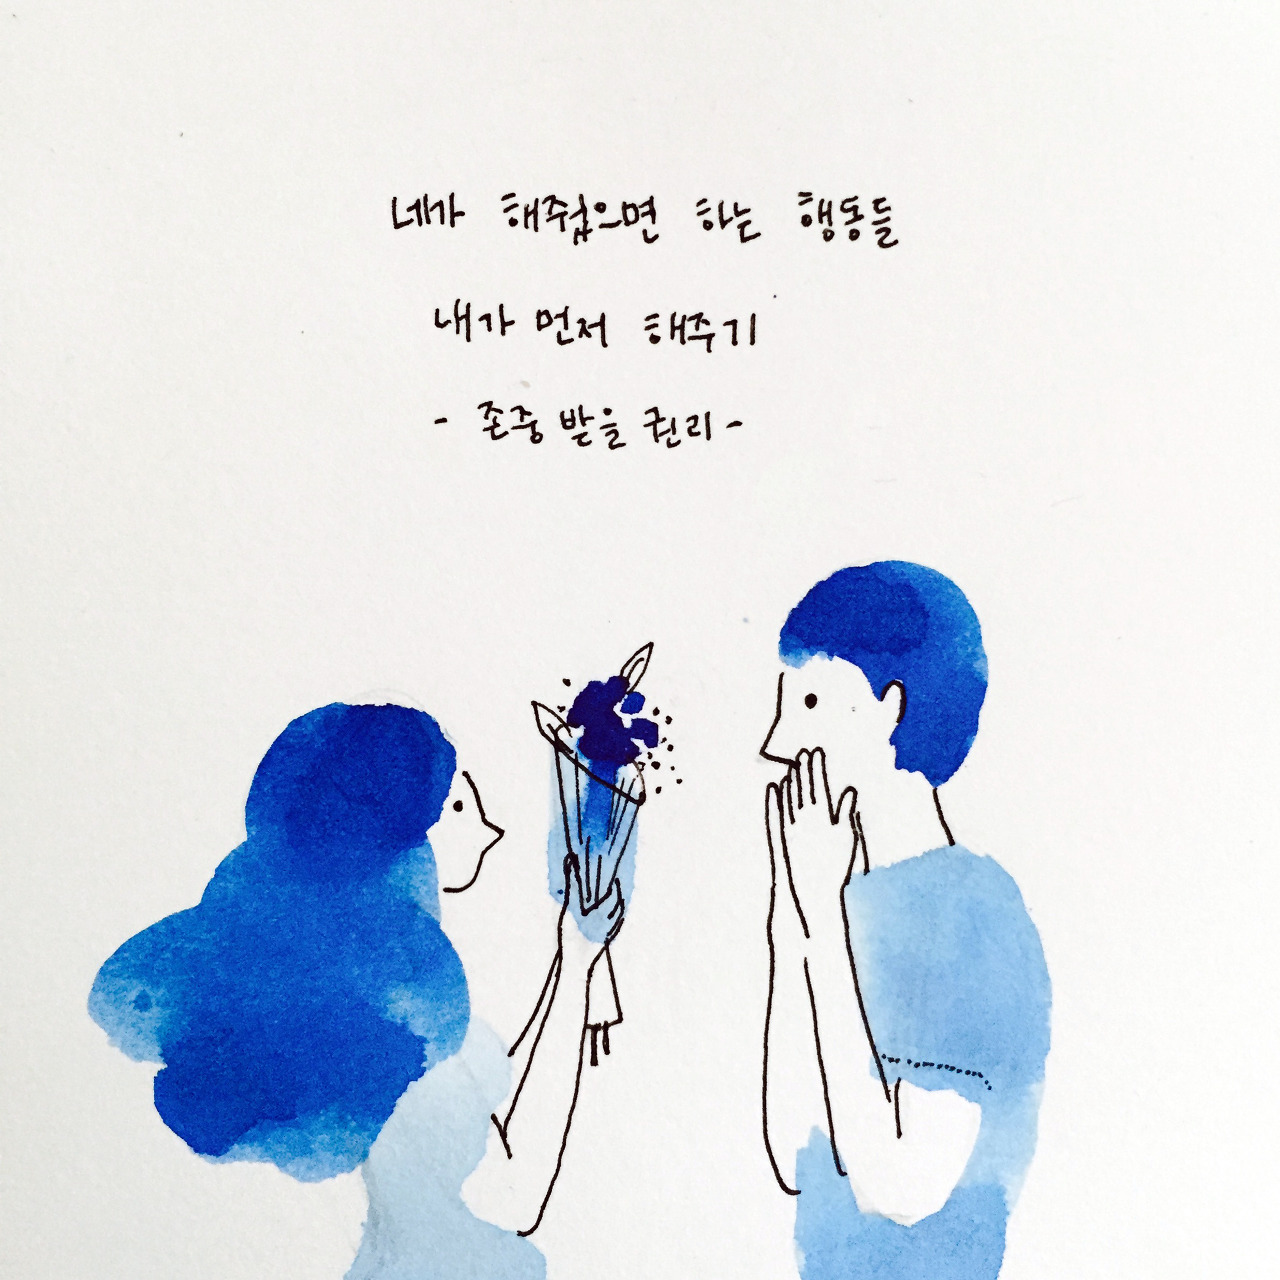 네가 해줬으면 하는 행동들
내가 먼저 해주기
- 존중 받을 권리 -